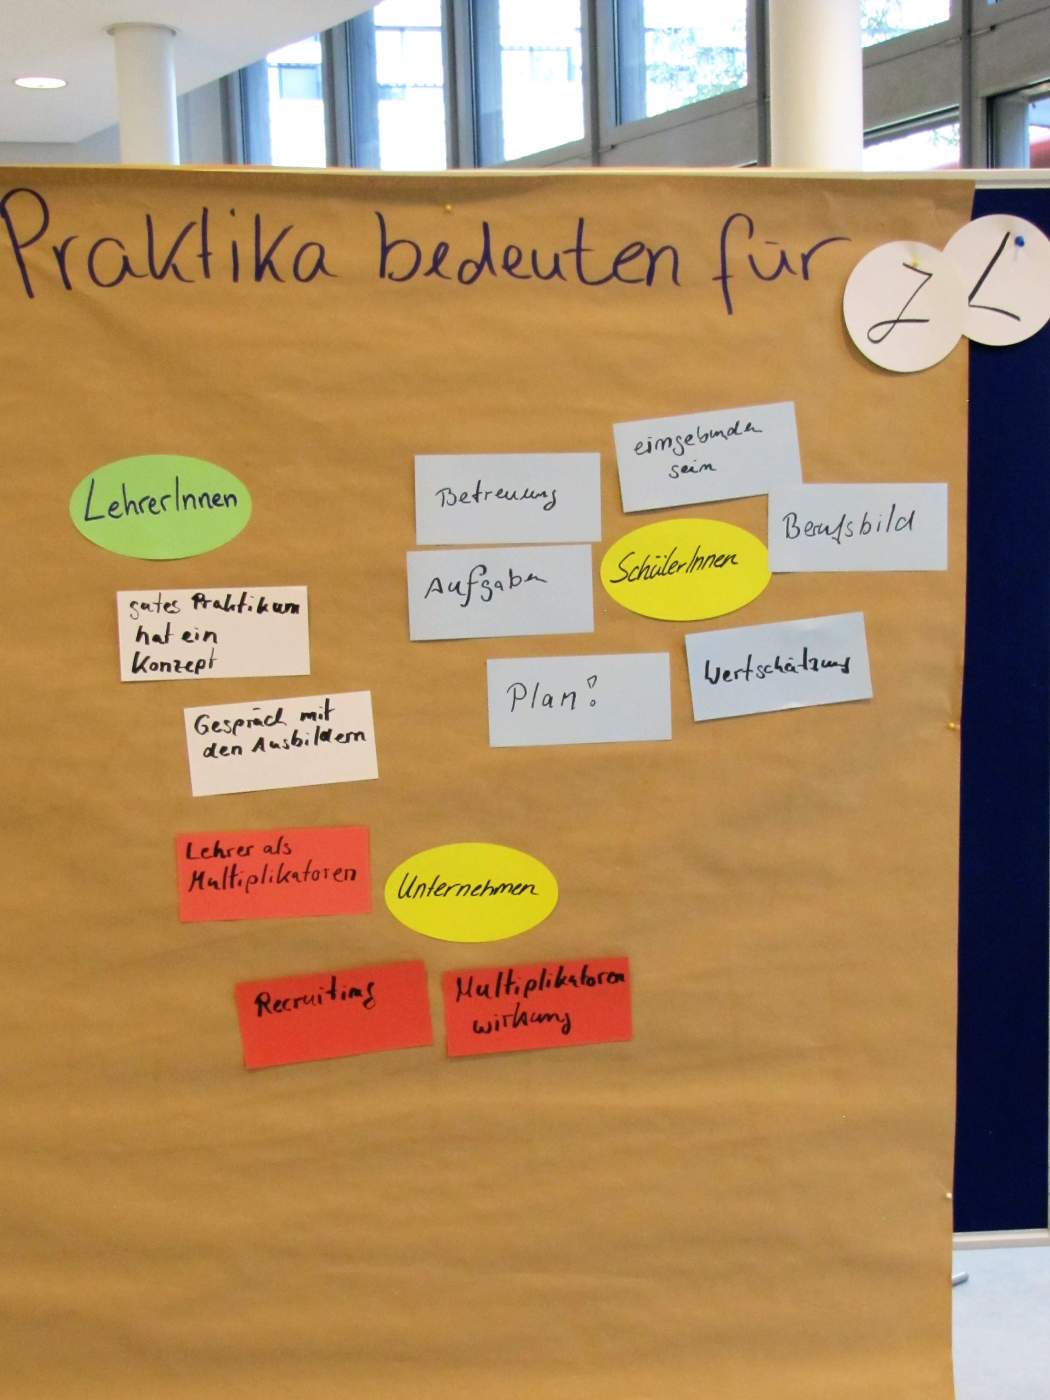 Praktika bedeuten für
Z
L
LehrerInnen
gutes Praktikum
hat ein
Konzept
Gespräch mit
den Ausbildern
Betreuung
eingebunden
sein
Berufsbild
SchülerInnen
Aufgaben
Plan!
Wertschätzung
Lehrer als
Multiplikatoren
Unternehmen
Recruiting
Multiplikatoren
wirkung